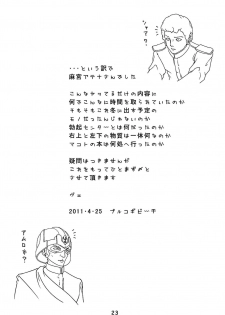 シャア？
・・・という訳で
麻宮アテナさんでした
こんなヤってるだけの内容に
何でこんなに時間を取られていたのか
そもそもこれ冬に出す予定の
モノだったんじゃないのか
勃起センターとは何だったのか
右上と左下の物体一体何なのか
マコトの本は何処へ行ったのか
疑問はつきませんが
これをもってひとまず〆と
させて頂きます
ヴェ
2011・4・25
アムロ？
23